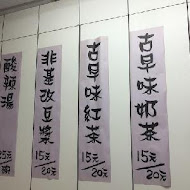 古早味奶茶
15元/20元
古早味紅茶
15元/20元
非基改豆漿
15元/20元
酸辣湯
25元